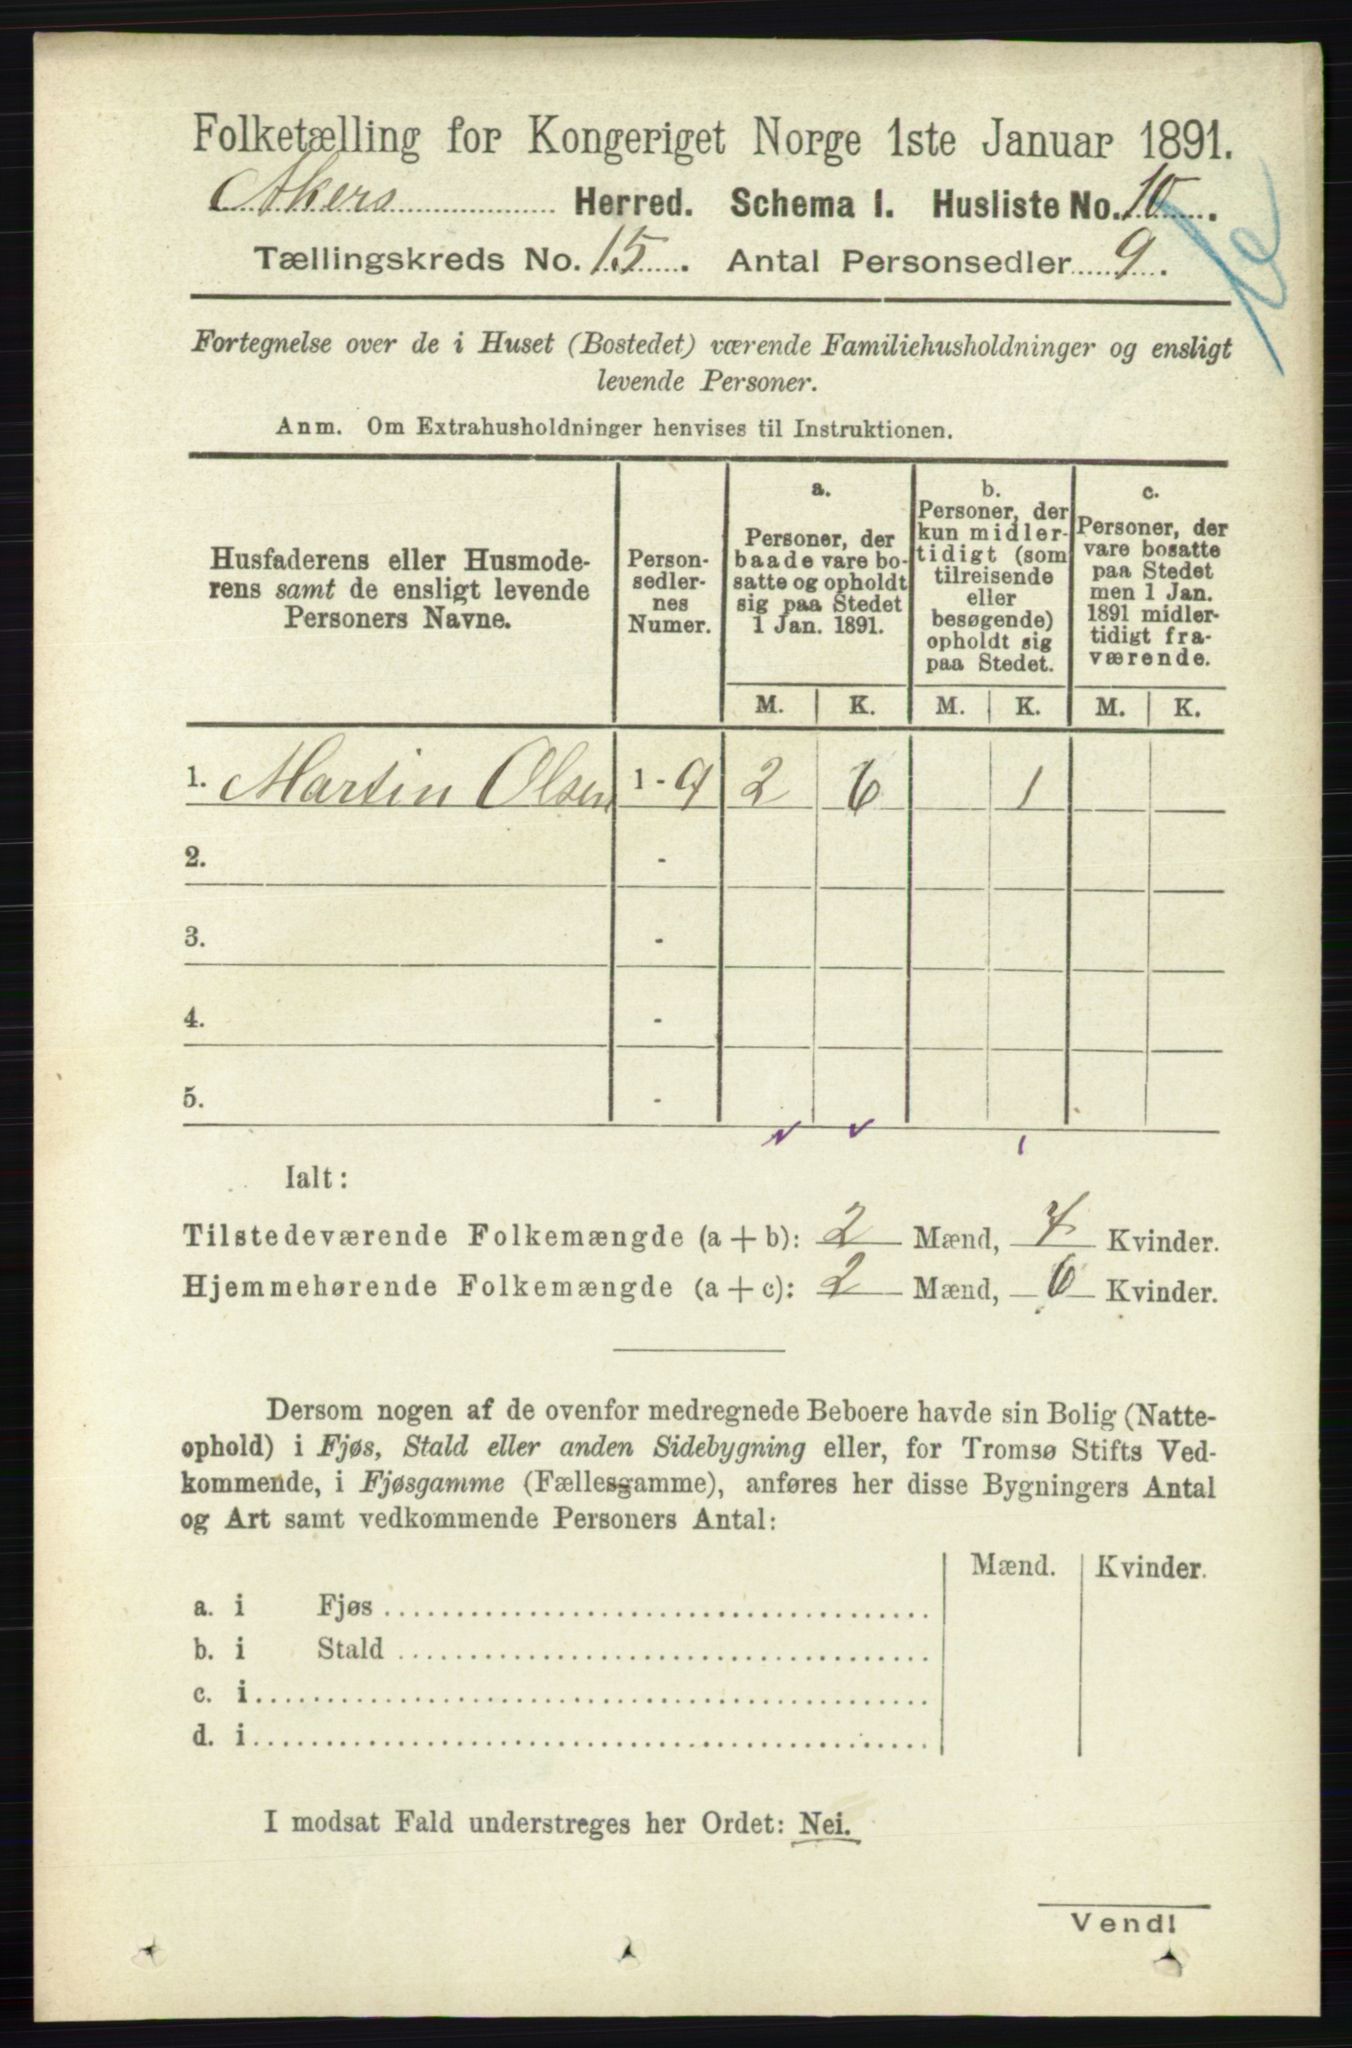 Folketælling for Kongeriget Norge 1ste Januar 1891.
Akers Herred. Schema I. Husliste No. 10.
Tællingskreds No. 15. Antal Personsedler 9.
Fortegnelse over de i Huset (Bostedet) værende Familiehusholdninger og ensligt
levende Personer.
Anm. Om Extrahusholdninger henvises til Instruktionen.
Husfaderens eller Husmode-
rens samt de ensligt levende
Personers Navne.
Person-
sedler-
nes
Numer.
a.
Personer, der
baade vare bo-
satte og opholdt
sig paa Stedet
1 Jan. 1891.
b.
Personer, der
kun midler-
tidigt (som
tilreisende
eller
besøgende)
opholdt sig
paa Stedet.
c.
Personer, der
vare bosatte
paa Stedet
men 1 Jan.
1891 midler-
tidigt fra-
værende.
M. K. M. K. M. K.
1. Martin Olsen 1 - 9 2 6 1
2. -
3. -
4. -
5. -
Ialt:
Tilstedeværende Folkemængde (a + b): 2 Mænd, 7 Kvinder.
Hjemmehørende Folkemængde (a + c): 2 Mænd, 6 Kvinder.
Dersom nogen af de ovenfor medregnede Beboere havde sin Bolig (Natte-
ophold) i Fjøs, Stald eller anden Sidebygning eller, for Tromsø Stifts Ved-
kommende, i Fjøsgamme (Fællesgamme), anføres her disse Bygningers Antal
og Art samt vedkommende Personers Antal:
Mænd. Kvinder.
a. i Fjøs
b. i Stald
c. i
d. i
I modsat Fald understreges her Ordet: Nei.
Vend!